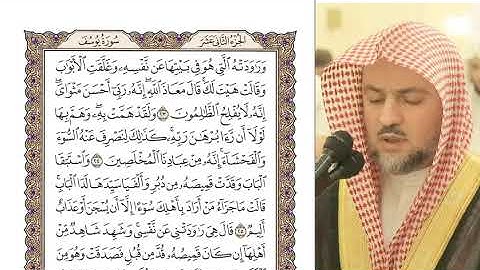 الجزء الثاني عشر
سورة يوسف
وَرَٰوَدَتْهُ ٱلَّتِى هُوَ فِى بَيْتِهَا عَن نَّفْسِهِۦ وَغَلَّقَتِ ٱلْأَبْوَٰبَ
وَقَالَتْ هَيْتَ لَكَ قَالَ مَعَاذَ ٱللَّهِ إِنَّهُۥ رَبِّىٓ أَحْسَنَ مَثْوَاىَ
إِنَّهُۥ لَا يُفْلِحُ ٱلظَّٰلِمُونَ ٢٣ وَلَقَدْ هَمَّتْ بِهِۦ وَهَمَّ بِهَا
لَوْلَآ أَن رَّءَا بُرْهَٰنَ رَبِّهِۦ كَذَٰلِكَ لِنَصْرِفَ عَنْهُ ٱلسُّوٓءَ
وَٱلْفَحْشَآءَ إِنَّهُۥ مِنْ عِبَادِنَا ٱلْمُخْلَصِينَ ٢٤ وَٱسْتَبَقَا
ٱلْبَابَ وَقَدَّتْ قَمِيصَهُۥ مِن دُبُرٍ وَأَلْفَيَا سَيِّدَهَا لَدَا ٱلْبَابِ
قَالَتْ مَا جَزَآءُ مَنْ أَرَادَ بِأَهْلِكَ سُوٓءًا إِلَّآ أَن يُسْجَنَ أَوْ عَذَابٌ
أَلِيمٌ ٢٥ قَالَ هِىَ رَٰوَدَتْنِى عَن نَّفْسِى وَشَهِدَ شَاهِدٌ مِّنْ
أَهْلِهَآ إِن كَانَ قَمِيصُهُۥ قُدَّ مِن قُبُلٍ فَصَدَقَتْ وَهُوَ مِنَ